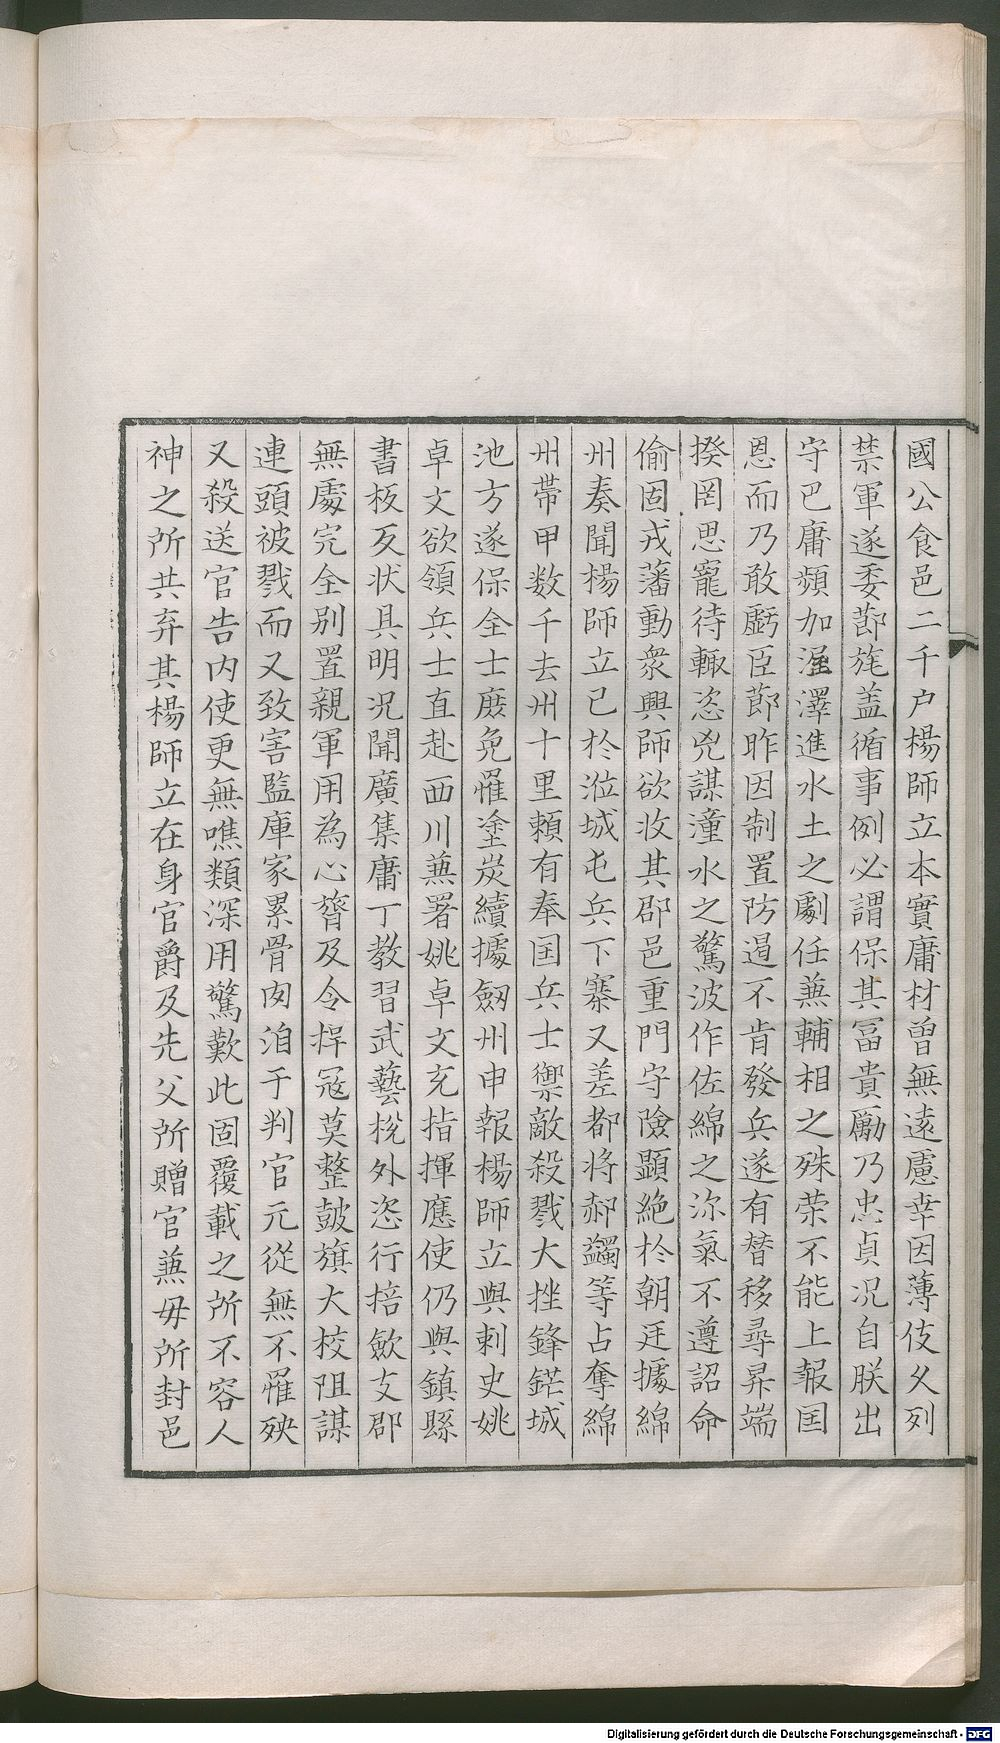 國公食邑二千户楊師立本實庸材曽無遠慮幸因薄伎久列
禁軍遂委莭旄盖循事例必謂保其冨貴勵乃忠貞况自朕出
守巴庸頻加渥澤進水土之劇任兼輔相之殊荣不能上報囯
恩而乃敢虧臣莭昨因制置防遏不肯發兵遂有替移尋昇端
揆罔思寵待輙恣兇謀潼水之驚波作佐綿之沵氣不遵詔命
偷固戎藩動衆興師欲收其郡邑重門守險顯絶扵朝廷據綿
州奏聞楊師立已扵涖城屯兵下寨又差都將郝蠲等占奪綿
州帶甲数千去州十里頼有奉囯兵士禦敵殺戮大挫鋒鋩城
池方遂保全士庶免罹塗炭續據劔州申報楊師立與刺史姚
卓文欲領兵士直赴西川兼署姚卓文充指揮應使仍與鎮縣
書板反状具明况聞廣集庸丁教習武藝枕外恣行掊歛支郡
無處完全别置親軍用為心膂及令捍冦莫整鼓旗大校阻謀
連頭被戮而又致害監庫家累骨肉洎于判官元從無不罹殃
又殺送官告内使更無噍類深用驚歎此固覆載之所不容人
神之所共弃其楊師立在身官爵及先父所贈官兼毋所封邑
Digitalisierung gefördert durch die Deutsche Forschungsgemeinschaft - DFG